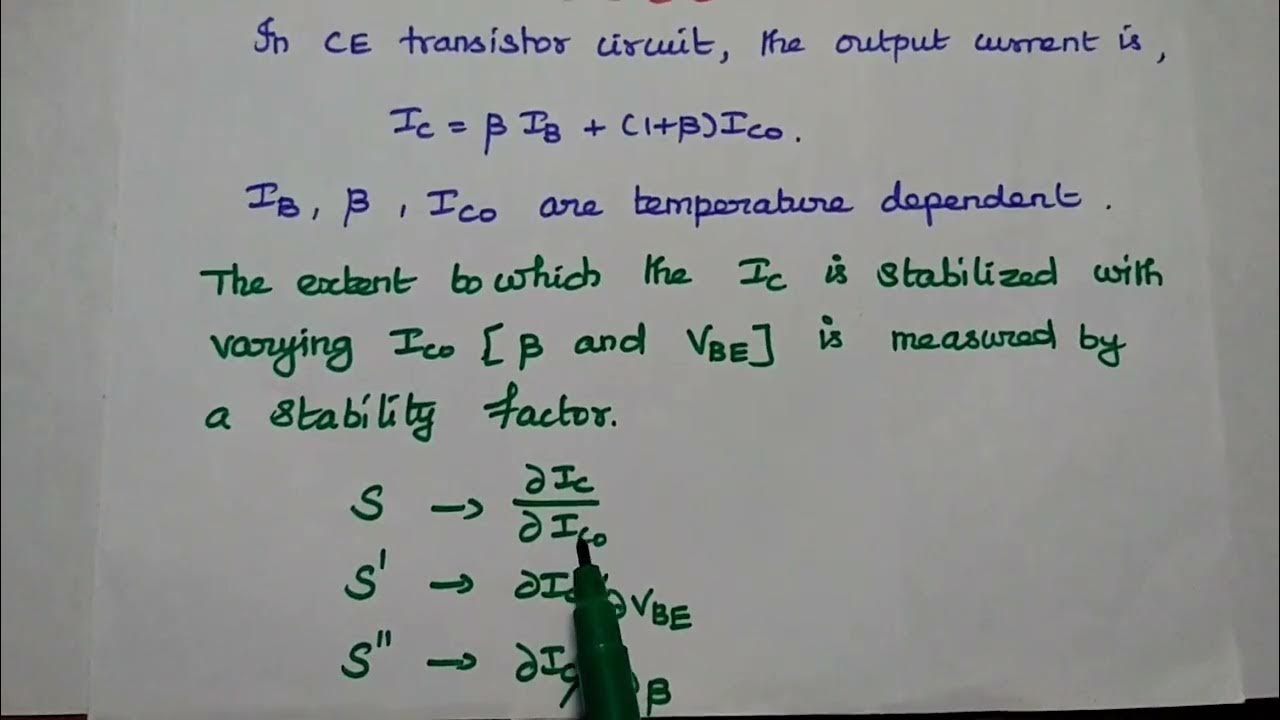 In CE transistor circuit, the output current is,
I_C = β I_B + (1+β) I_CO.
I_B, β, I_CO are temperature dependent.
The extent to which the I_C is stabilized with
varying I_CO [β and V_BE] is measured by
a stability factor.
S → ∂I_C / ∂I_CO
S' → ∂I_C / ∂V_BE
S" → ∂I_C / ∂β